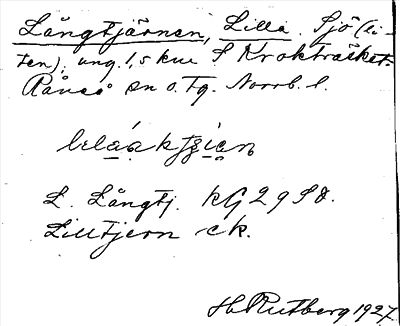 Långtjärnen, Lilla. Sjö (li-
ten), ung. 1,5 km S Krokträsket.
Råneå sn o. tg. Norrb. l.
L. Långtj. kG 29 SO.
Lilltjern ek.
H. Rutberg 1927.